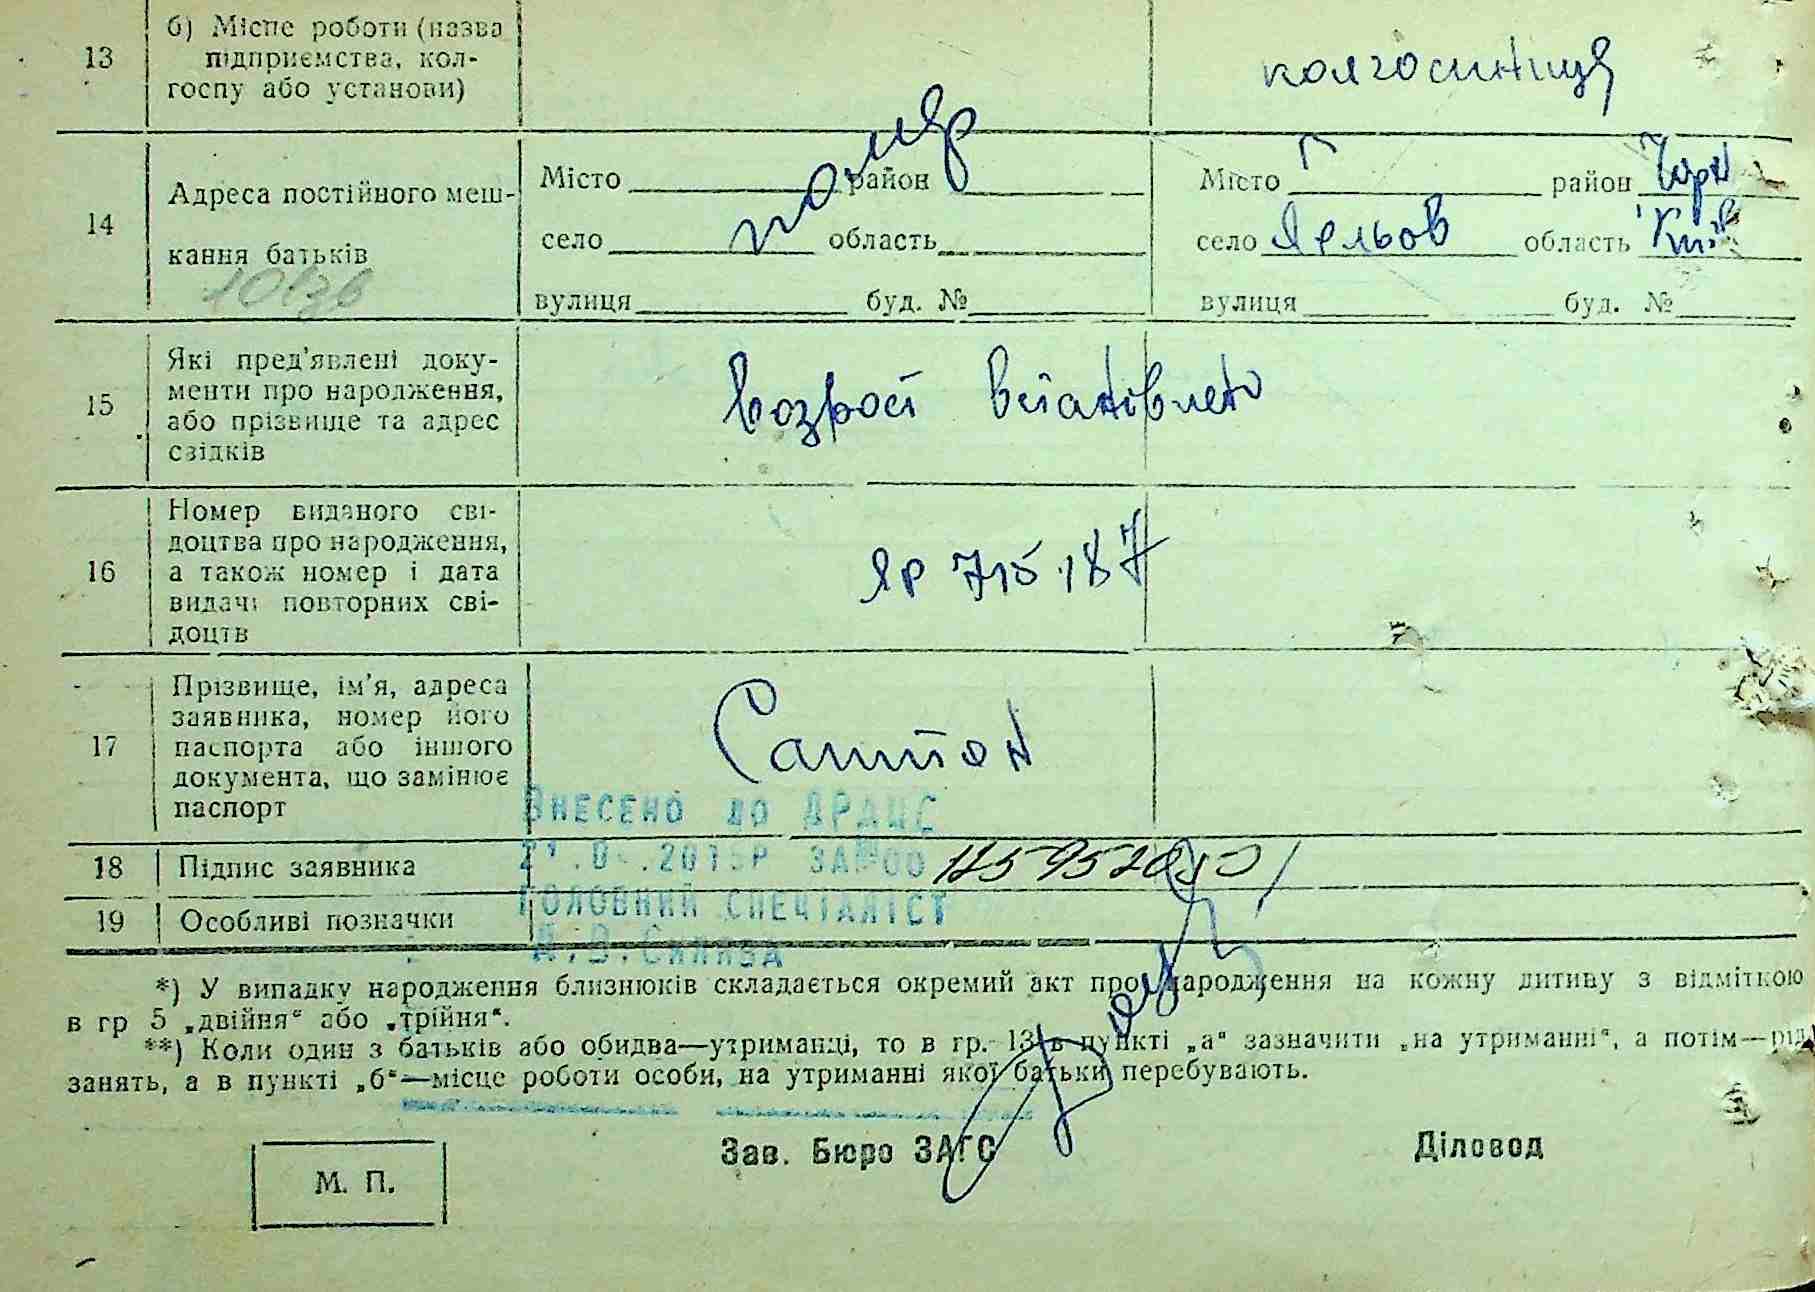 13 б) Місце роботи (назва
підприємства, кол-
госпу або установи)
колгоспниця
14 Адреса постійного меш-
кання батьків
помер
Місто район
село область
вулиця буд. №
Місто район Чорн
село Ярльов область Київ
вулиця буд. №
15 Які пред'явлені доку-
менти про народження,
або прізвище та адрес
свідків
возраст встановлено
16 Номер виданого сві-
доцтва про народження,
а також номер і дата
видачі повторних сві-
доцтв
ЯР 715187
17 Прізвище, ім'я, адреса
заявника, номер його
паспорта або іншого
документа, що замінює
паспорт
ВНЕСЕНО ДО ДРАЦС
2015Р ЗА №00
18 Підпис заявника
ГОЛОВНИЙ СПЕЦІАЛІСТ
19 Особливі позначки
*) У випадку народження близнюків складається окремий акт про народження на кожну дитину з відміткою
в гр 5 „двійня“ або „трійня“.
**) Коли один з батьків або обидва—утриманці, то в гр. 13 в пункті „а“ зазначити „на утриманні“, а потім—рід
занять, а в пункті „б“—місце роботи особи, на утриманні якої батьки перебувають.
Зав. Бюро ЗАГС Діловод
М. П.